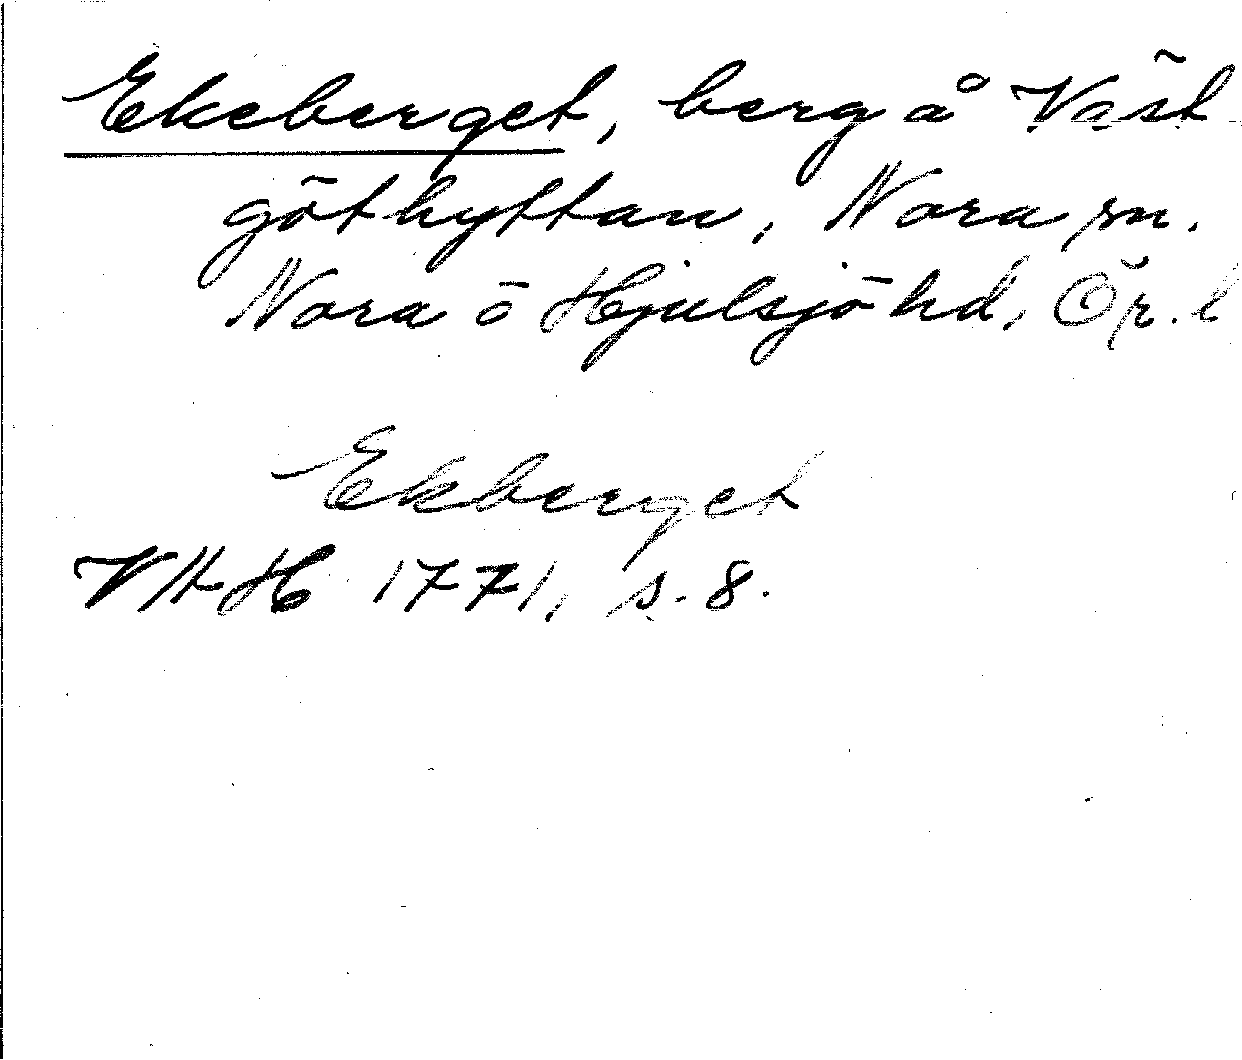 Ekeberget, berg å Väst-
göthyttan, Nora sn.
Nora o Hjulsjö hd, Ör. l
Ekberget
VHH 1771, s. 8.